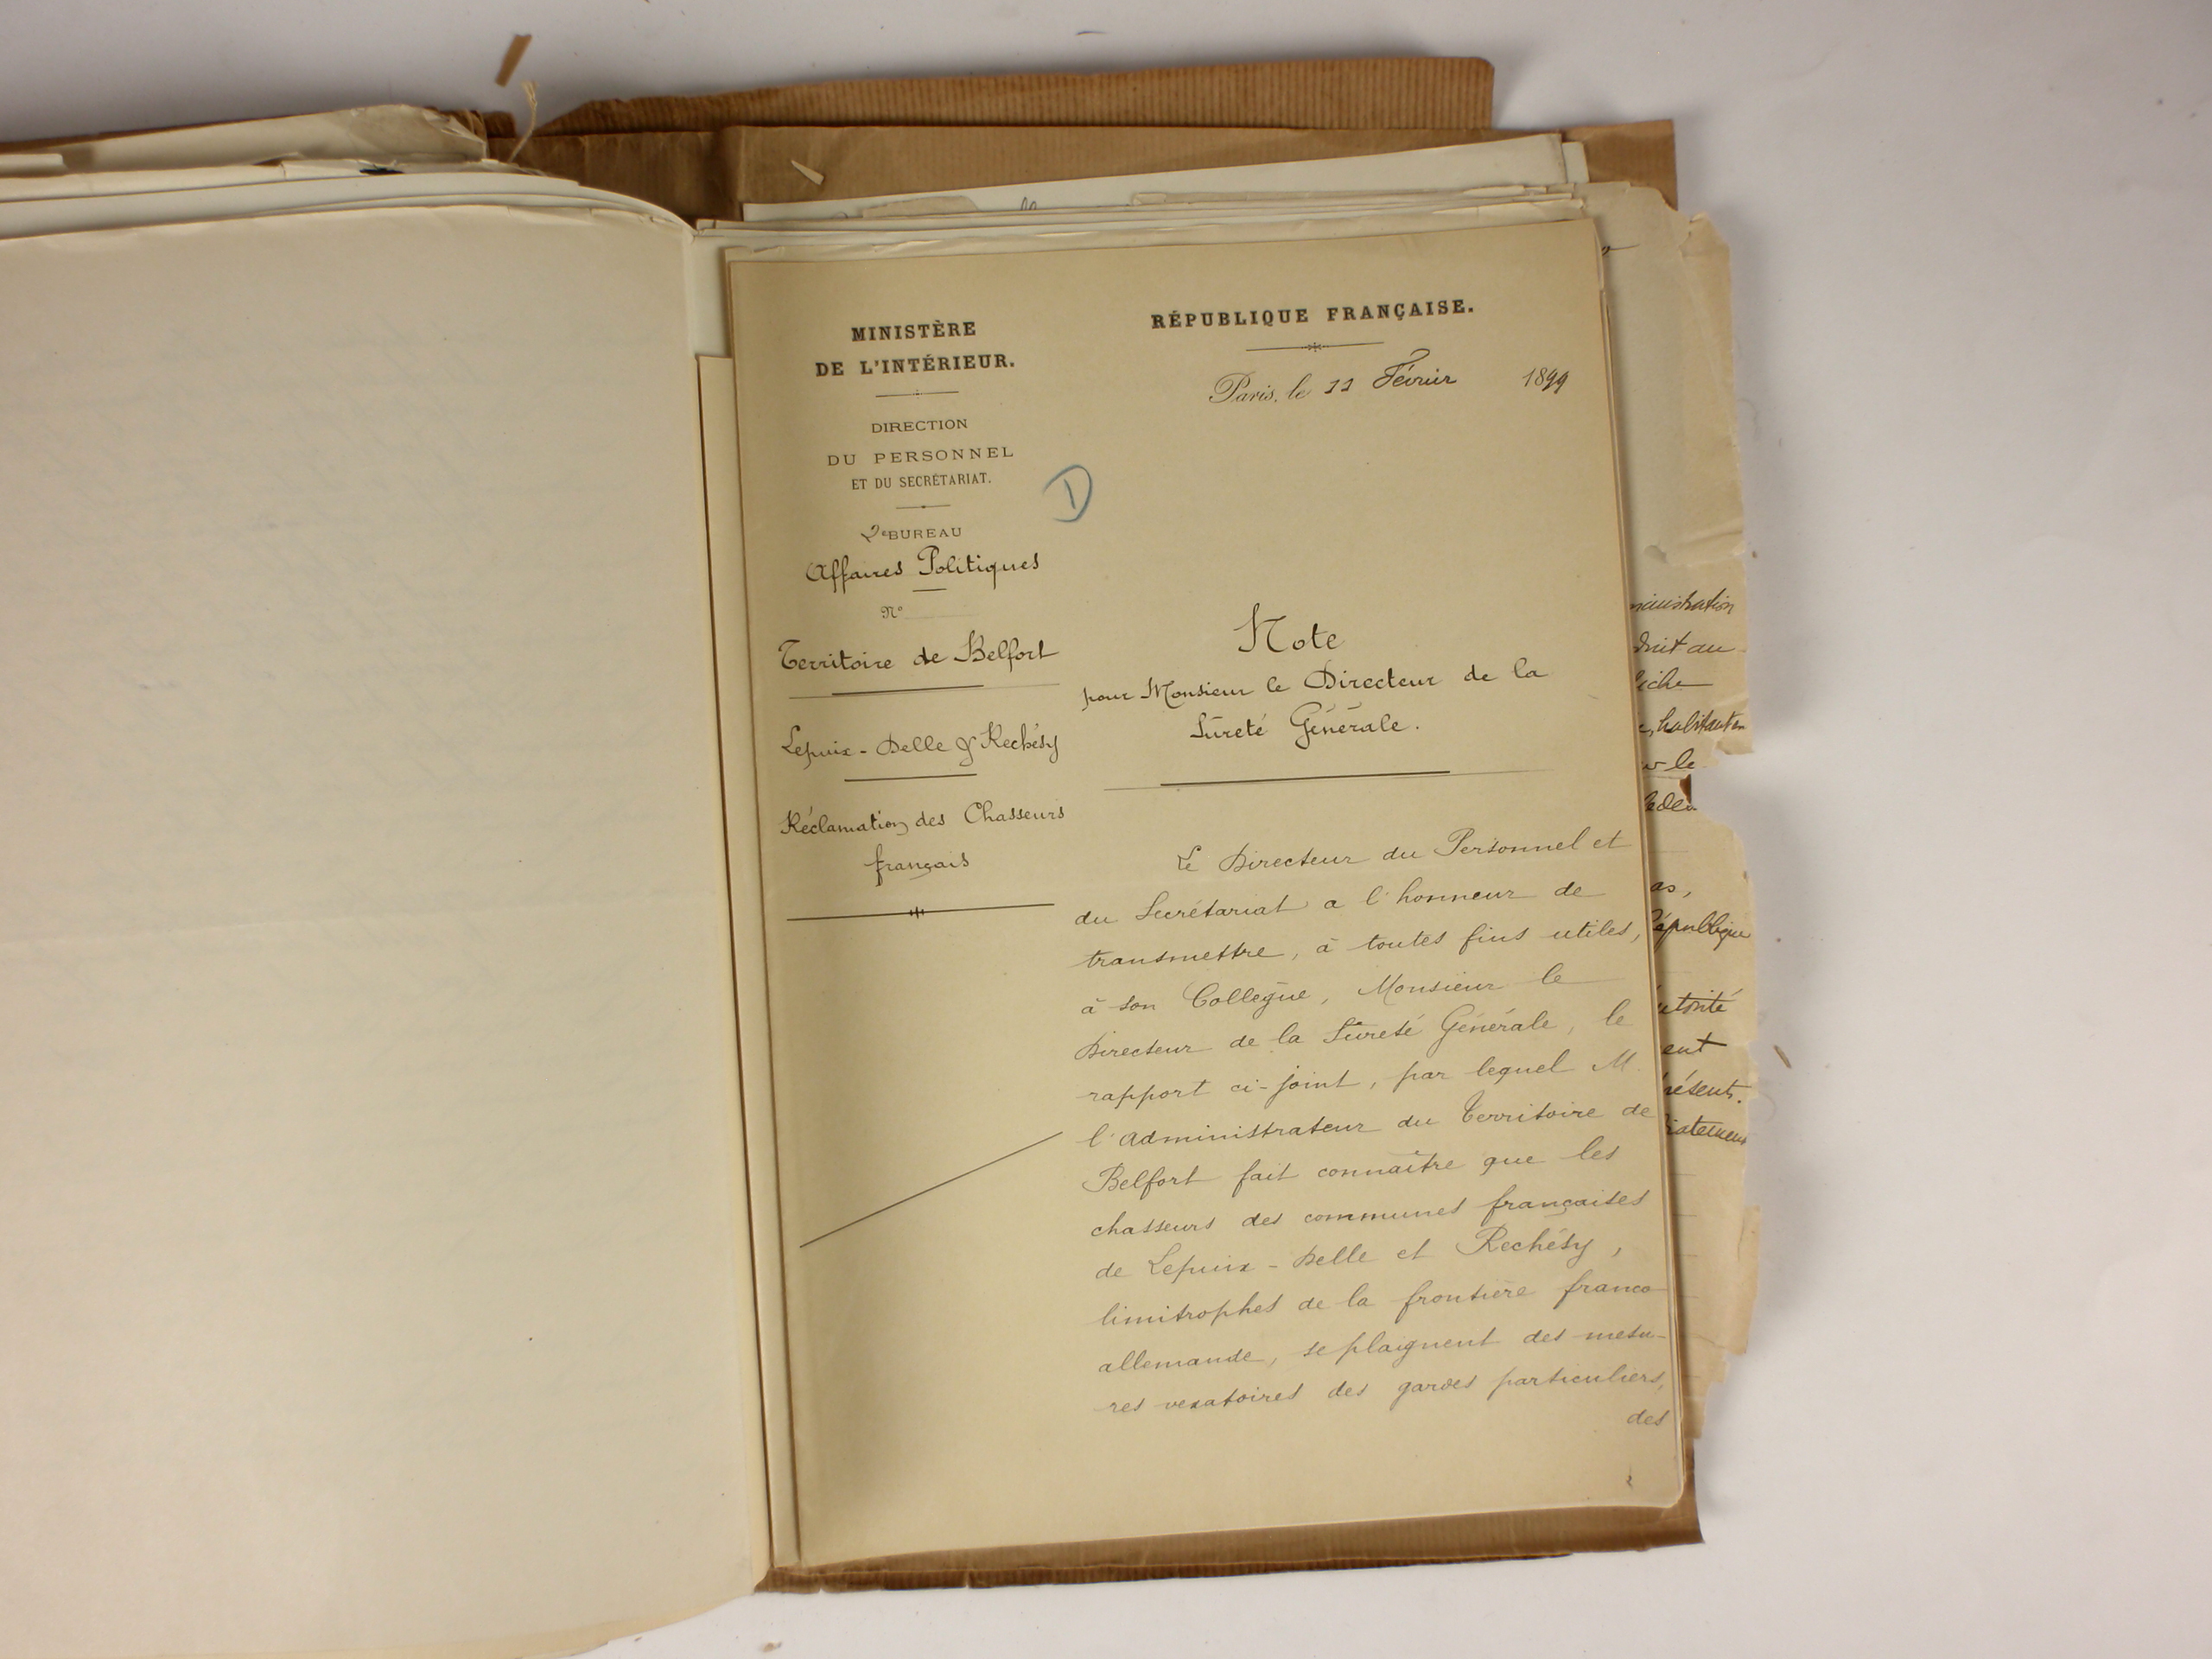 MINISTÈRE
DE L'INTÉRIEUR.
DIRECTION
DU PERSONNEL
ET DU SECRÉTARIAT.
2e BUREAU
Affaires Politiques
N°
Territoire de Belfort
Lepuix-Delle & Rechésy
Réclamation des Chasseurs
français
RÉPUBLIQUE FRANÇAISE.
Paris, le 11 Février 1899
D
Note
pour Monsieur le Directeur de la
Sûreté Générale.
Le Directeur du Personnel et
du Secrétariat a l'honneur de
transmettre, à toutes fins utiles,
à son Collègue, Monsieur le
Directeur de la Sûreté Générale, le
rapport ci-joint, par lequel M.
l'Administrateur du Territoire de
Belfort fait connaître que les
chasseurs des communes françaises
de Lepuix-Delle et Rechésy,
limitrophes de la frontière franco
allemande, se plaignent des mesu-
res vexatoires des gardes particuliers,
des